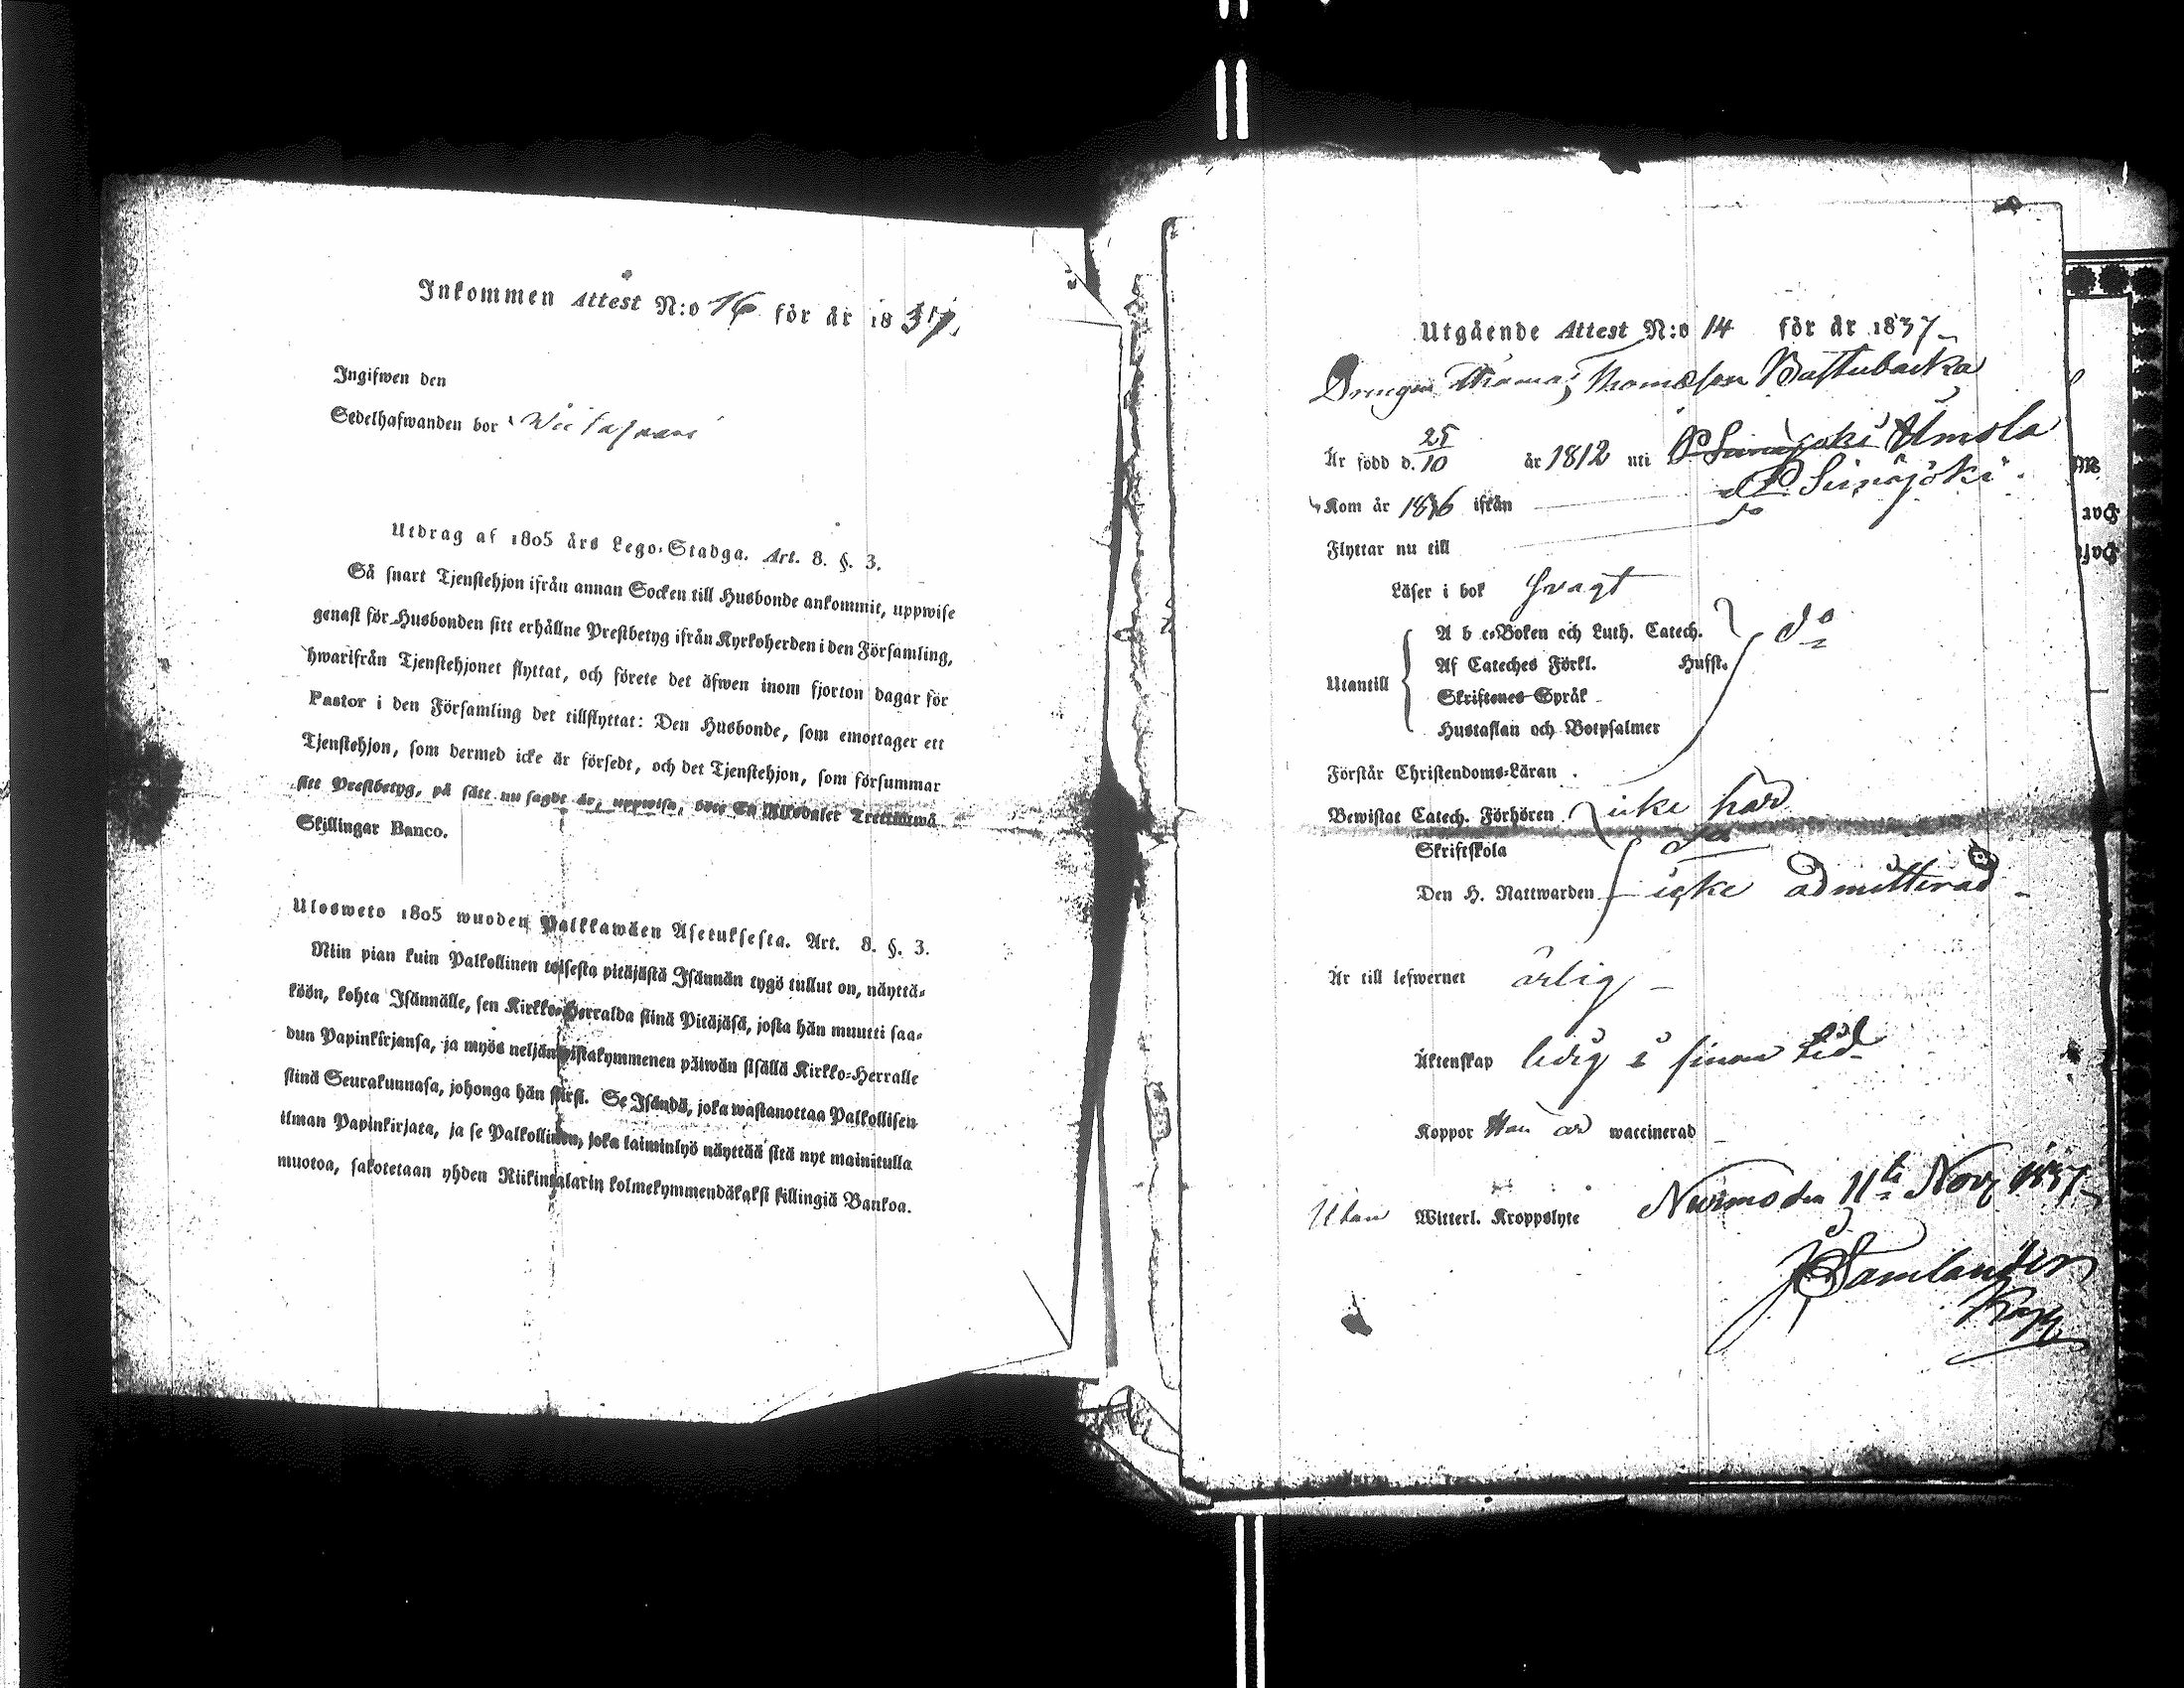 Inkommen Attest N:o 16 för år 1837.
Ingifwen den
Sedelhafwanden bor
Utdrag af 1805 års Lego-Stadga. Art. 8. §. 3.
Så snart Tjenstehjon ifrån annan Socken till Husbonde ankommit, uppwise
genast för Husbonden sitt erhållne Prestbetyg ifrån Kyrkoherden i den Församling,
hwarifrån Tjenstehjonet flyttat, och förete det äfwen inom fjorton dagar för
Pastor i den Församling det tillflyttat: Den Husbonde, som emottager ett
Tjenstehjon, som dermed icke är försedt, och det Tjenstehjon, som försummar
sitt Prestbetyg, på sätt nu sagdt är, uppwisa, böte En Riksdaler Trettiotwå
Skillingar Banco.
Ulosweto 1805 wuoden Palkkawäen Asetuksesta. Art. 8. §. 3.
Niin pian kuin Palkollinen toisesta pitäjästä Isännän tygö tullut on, näyttä-
köön, kohta Isännälle, sen Kirkko-Herralda siinä Pitäjäsä, josta hän muutti saa-
dun Papinkirjansa, ja myös neljäntoistakymmenen päiwän sisällä Kirkko-Herralle
siinä Seurakunnasa, johonga hän siirsi. Se Isändä, joka wastanottaa Palkollisen
ilman Papinkirjata, ja se Palkollinen, joka laiminlyö näyttää sitä nyt mainitulla
muotoa, sakotetaan yhden Riikintalarin kolmekymmendäkaksi killingiä Bankoa.
Utgående Attest N:o 14 för år 1837
Drengen Thomas Thomasson
Är född d. 25/10 år 1812 uti Ämola
Kom år 1836 ifrån Seinäjoki
Flyttar nu till do
Läser i bok svagt
A b c-Boken och Luth. Catech.
Af Cateches Förkl. Hufst. do
Utantill
Skriftenes Språk
Hustaflan och Botpsalmer
Förstår Christendoms-Läran
Bewistat Catech. Förhören icke här
Skriftskola
Den H. Nattwarden icke admitterad
Är till lefwernet ärlig
Äktenskap ledig i sinom tid
Koppor Han är waccinerad
Utan Witterl. Kroppslyte Nurmo den 11te Nov 1837
J Gamlander